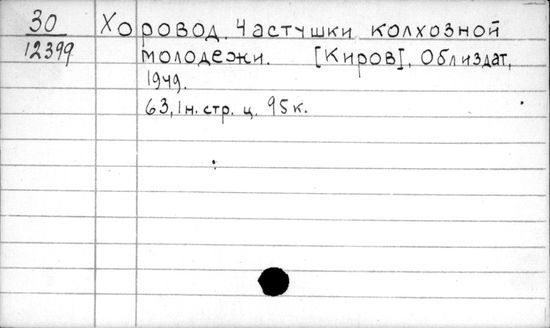 30 Хоровод. Частушки колхозной
12399 молодежи. [Киров], Облиздат,
1949.
63, 1 н. стр. ц. 95 к.